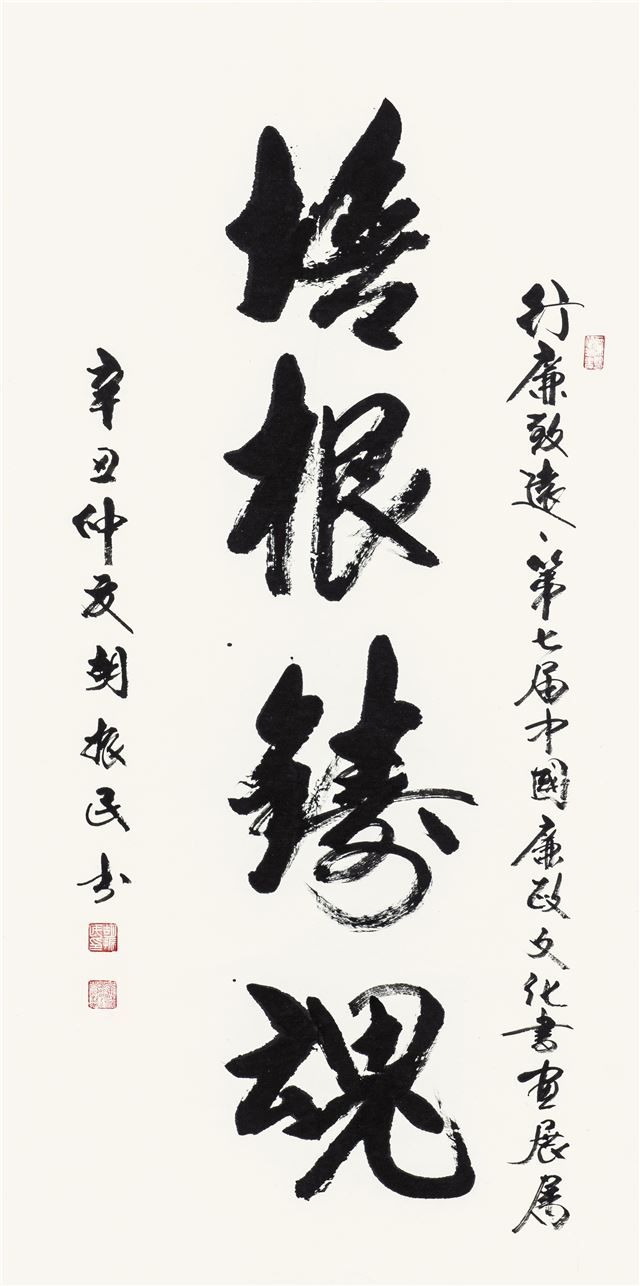 行廉致遠、第七届中國廉政文化書画展属
培根鑄魂
辛丑仲夏胡振民书